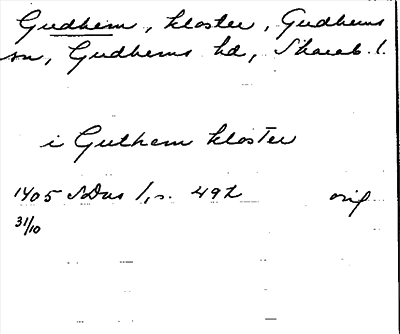 Gudhem, kloster, Gudhems
sn, Gudhems hd, Skarab. l.
i Guthem kloster
1405 SDns 1, s. 492 orig
31/10